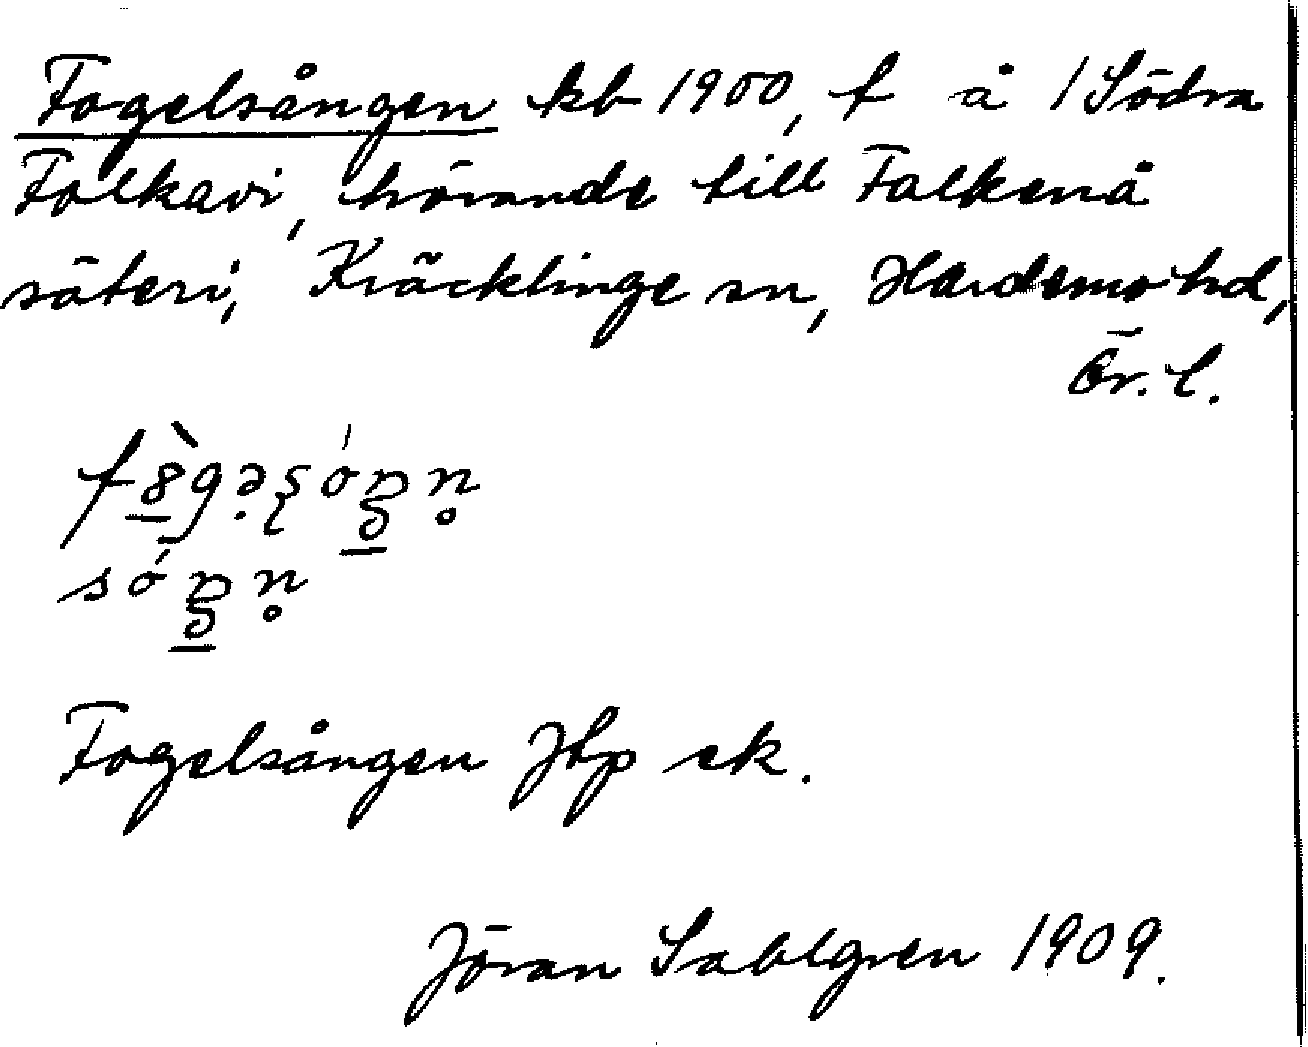 Fogelsången kb 1900, t å 1 Södra
Folkavi, hörande till Falkenå
säteri, Kräcklinge sn, Hardemo hd,
Ör. l.
Fogelsången Jbp ek.
Jöran Sahlgren 1909.